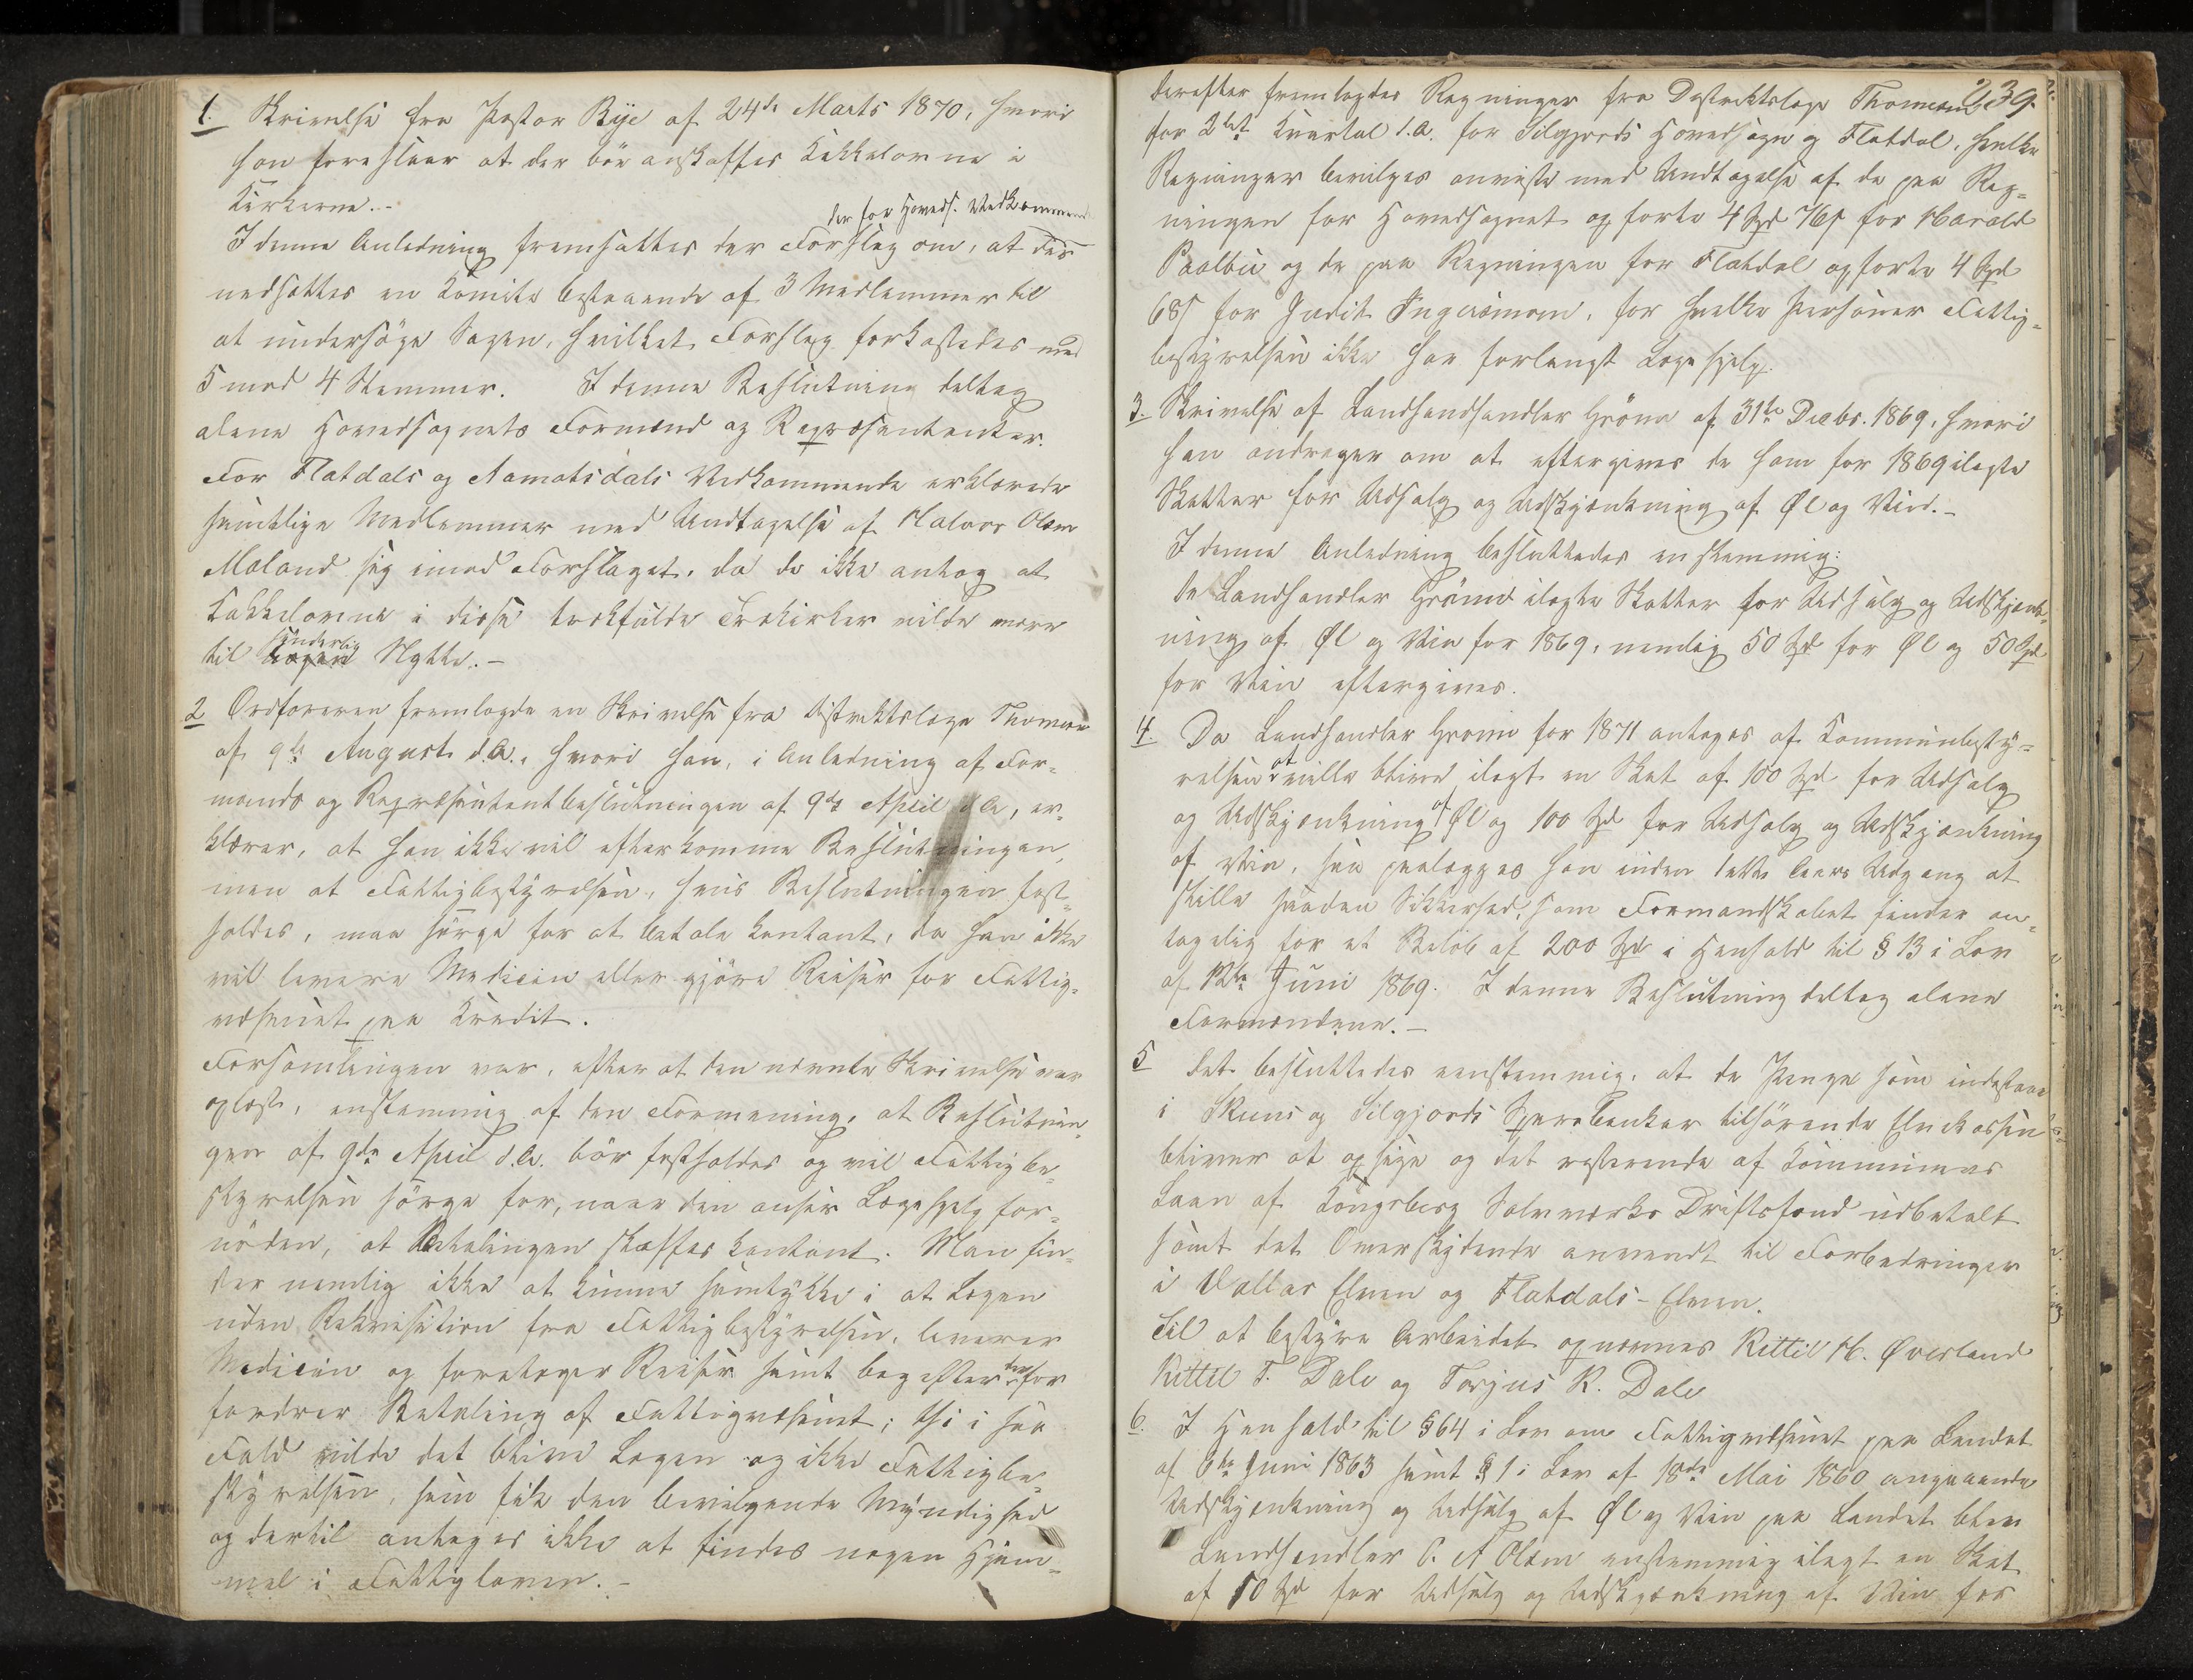 1. Skrivelse fra Pastor Bye af 24de Marts 1870, hvori
han foreslaar at der bør anskaffes Kakkelovne i
Kirkerne.-
der for Hoveds. Vedkommende
I denne Anledning fremsattes der Forslag om, at der
nedsattes en Komite bestaaende af 3 Medlemmer til
at undersøge Sagen, hvilket Forslag forkastedes med
5 mod 4 Stemmer. I denne Beslutning deltog
alene Hovedsognets Formænd og Repræsentanter.
For Flatdals og Aamotsdals Vedkommende erklærede
samtlige Medlemmer med Undtagelse af Halvor Olsen
Moland sig imod Forslaget, da de ikke antog at
Kakkelovne i disse trækfulde Trækirker vilde være
sønderlig
til nogen Nytte.-
2 Ordføreren fremlagde en Skrivelse fra Distriktslæge Thomesen
af 9de August d.A., hvori han, i Anledning af For-
mands og Repræsentantbeslutningen af 9de April d.A, er-
klærer, at han ikke vil efterkomme Beslutningen,
men at Fattigbestyrelsen, hvis Beslutningen fast-
holdes, maa sørge for at betale kontant, da han ikke
vil levere Medicin eller gjøre Reiser for Fattig-
væsenet paa Kredit.
Forsamlingen var, efter at den nævnte Skrivelse var
oplæst, enstemmig af den Formening, at Beslutnin-
gen af 9de April d.A. bør fastholdes og vil Fattigbe-
styrelsen sørge for, naar den anser Lægehjelp for-
nøden, at Betalingen skaffes kontant. Man fin-
der nemlig ikke at kunne samtykke i at Lægen
uden Rekvisition fra Fattigbestyrelsen, leverer
Medicin og foretager Reiser samt bagefter derfor
fordrer Betaling af Fattigvæsenet; thi i saa
Fald vilde det blive Lægen og ikke Fattigbe-
styrelsen, som fik den bevilgende Myndighed
og dertil antages ikke at findes nogen Hjem-
mel i Fattigloven.-
239.
Derefter fremlagdes Regninger fra Distriktslæge Thomesen
for 2det Kvartal d.A. for Silgjords Hovedsogn og Flatdal, hvilke
Regninger bevilges anviste med Undtagelse af de paa Reg-
ningen for Hovedsognet opførte 4 Spd 76 s for Harald
Paalbu og de paa Regningen for Flatdal opførte 4 Spd
68 s for Judit Ingusmoen, for hvilke Personer Fattig-
bestyrelsen ikke har forlangt Lægehjelp.
3. Skrivelse af Landhandler Grøne af 31te Decbr. 1869, hvori
han andrager om at eftergives de ham for 1869 ilagte
Skatter for Udsalg og Udskjænkning af Øl og Vin.-
I denne Anledning besluttedes enstemmig:
De Landhandler Grøne ilagte Skatter for Udsalg og Udskjænk-
ning af Øl og Vin for 1869, nemlig 50 Spd for Øl og 50 Spd
for Vin eftergives.
4. Da Landhandler Grøne for 1871 antages af Kommunebesty-
relsen at ville blive ilagt en Skat af 100 Spd for Udsalg
og Udskjænkning af Øl og 100 Spd for Udsalg og Udskjænkning
af Vin, saa paalægges han inden dette Aars Udgang at
stille saadan Sikkerhed, som Formandskabet finder an-
tagelig for et Beløb af 200 Spd i Henhold til § 13 i Lov
af 12te Juni 1869. I denne Beslutning deltog alene
Formændene.-
5 Det besluttedes eenstemmig, at de Penge som indestaar
i Skiens og Silgjords Sparebanker tilhørende Elvekassen
bliver at opsige og det resterende af Kommunens
Laan af Kongsberg Sølvværks Driftsfond udbetalt
samt det Overskydende anvendt til Forbedringer
i Vallar Elven og Flatdals-Elven.
Til at bestyre Arbeidet opnævnes Kittil H. Øverland
Kittil T. Dale og Torjus K. Dale
6. I Henhold til § 64 i Lov om Fattigvæsenet paa Landet
af 6te Juni 1863 samt § 1 i Lov af 18de Mai 1860 angaaende
Udskjænkning og Udsalg af Øl og Vin paa Landet blev
Landhandler O. A Olsen enstemmig ilagt en Skat
af 50 Spd for Udsalg og Udskjænkning af Vin for